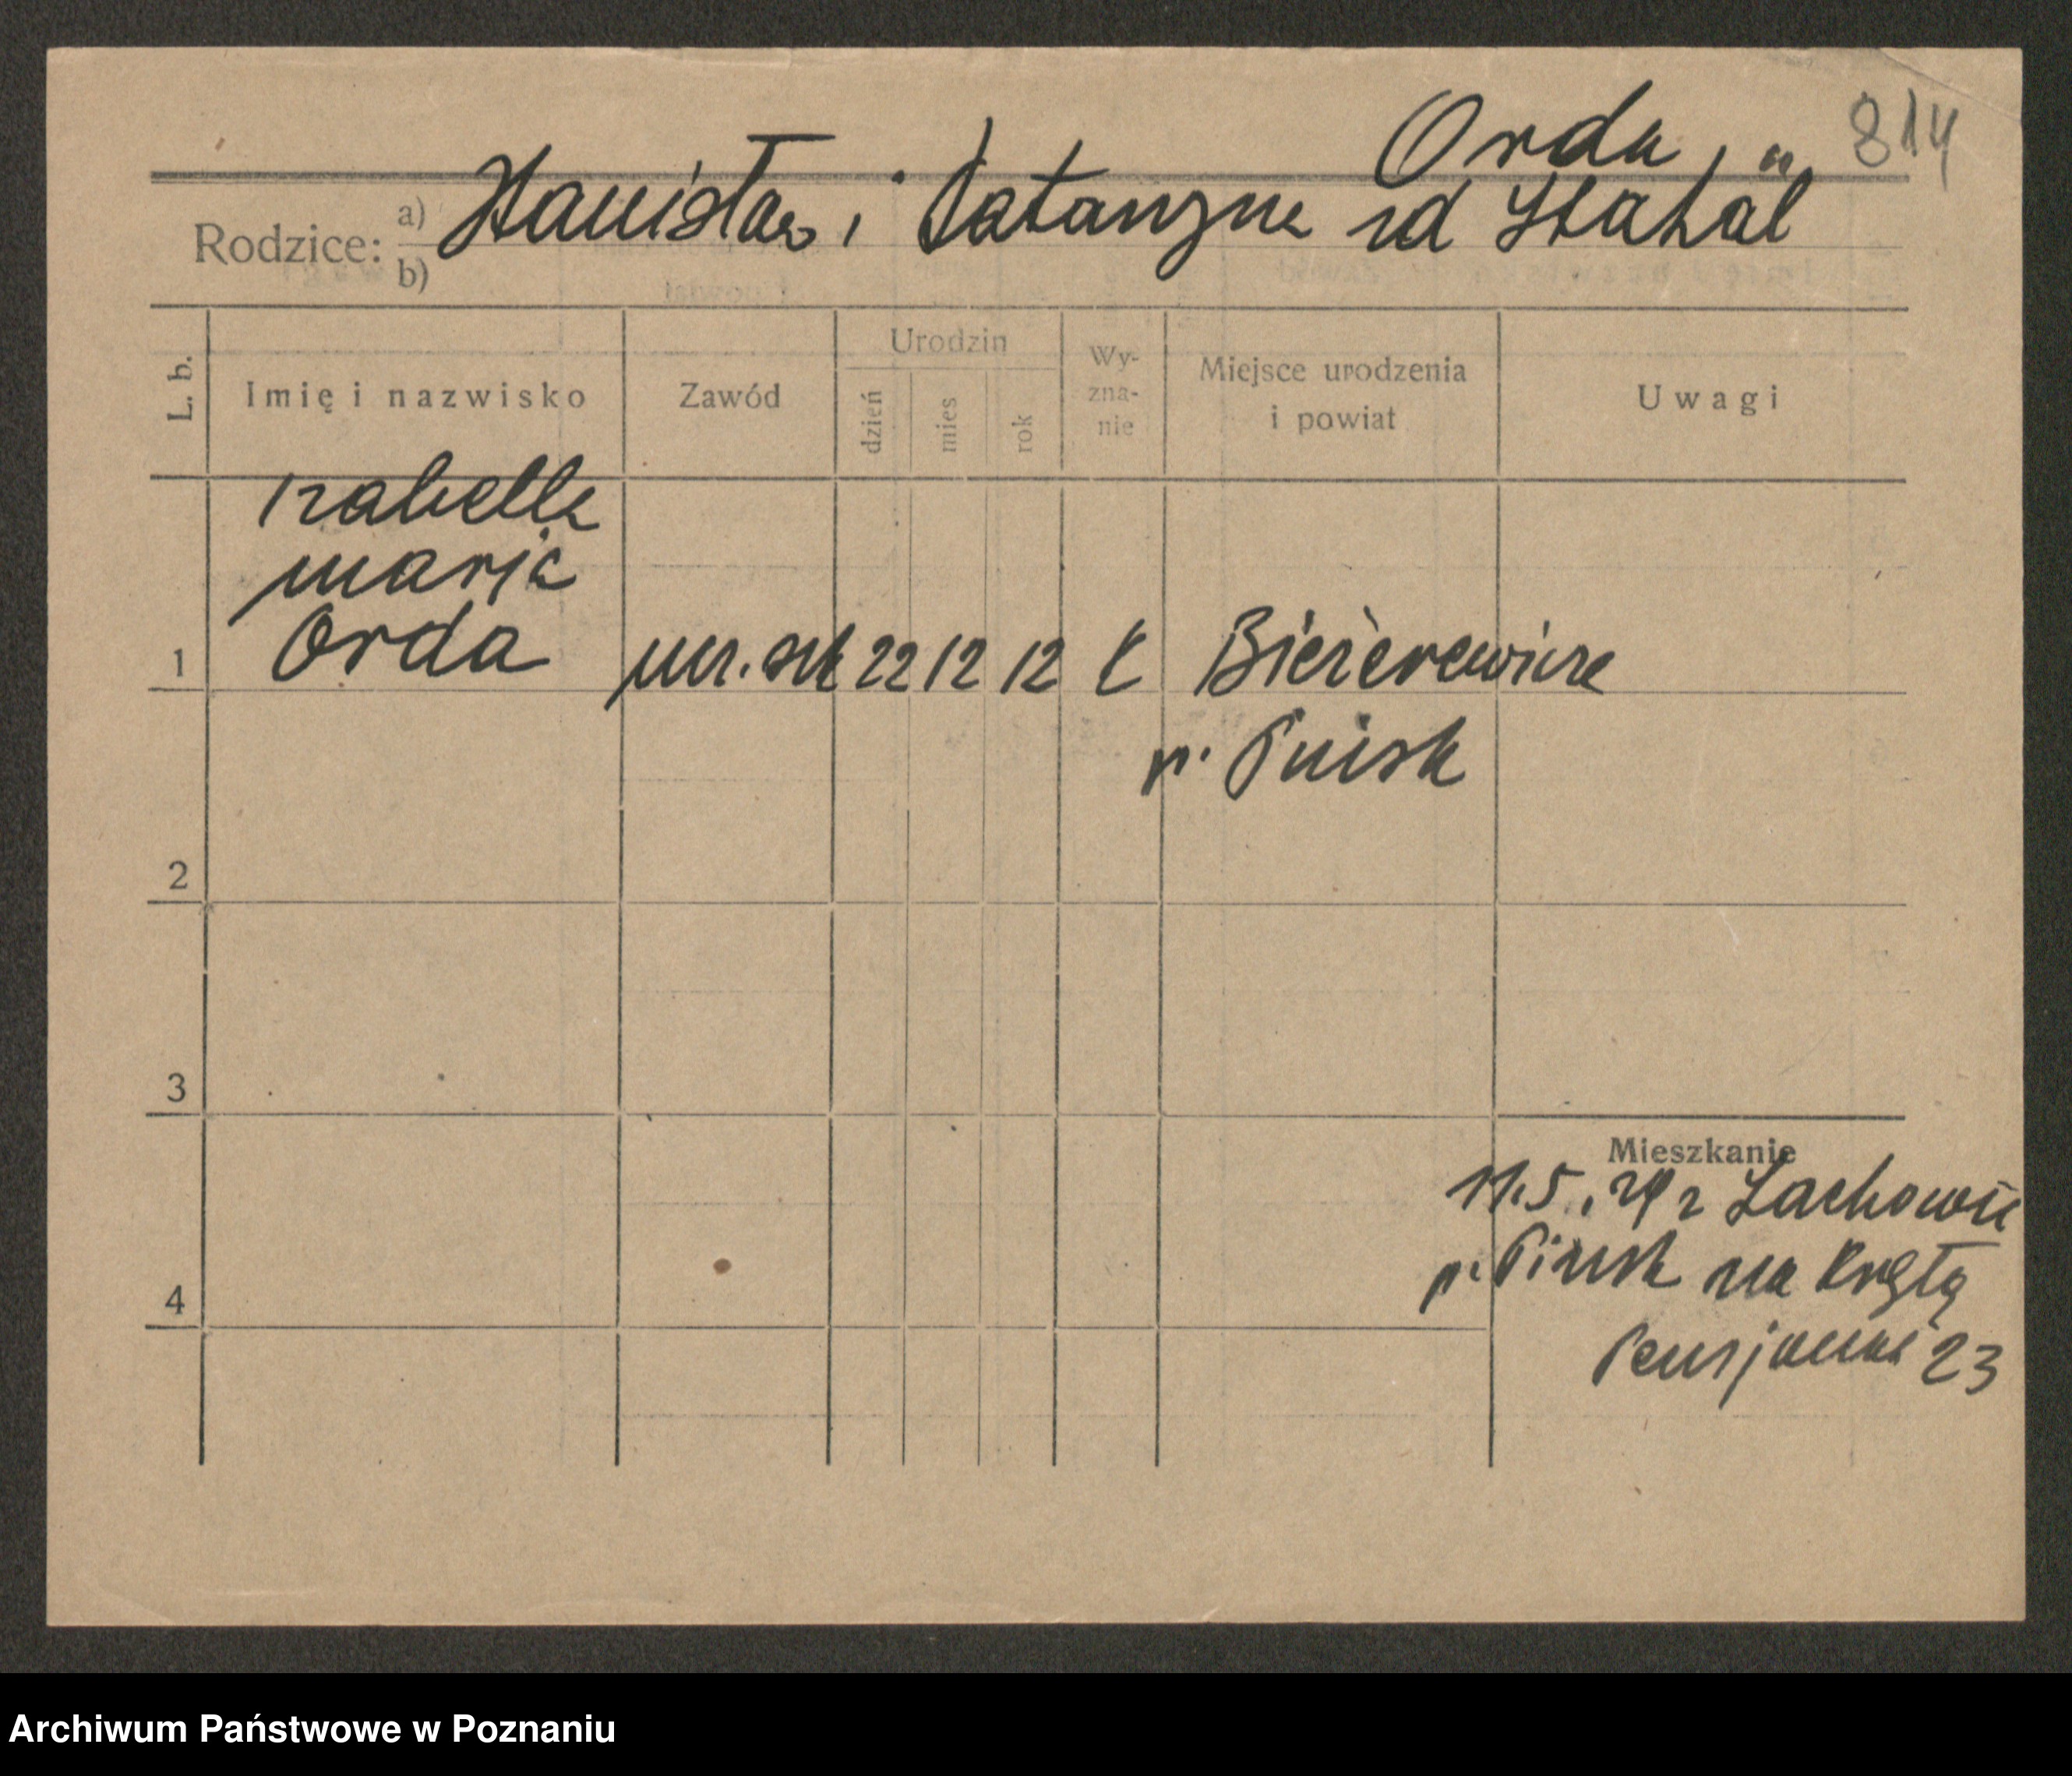 Orda, 814
Rodzice: a) Stanisław i Katarzyna zd Skahäl
b)
L. b. Imię i nazwisko Zawód Urodzin dzień mies rok Wy-zna-nie Miejsce urodzenia i powiat Uwagi
Izabella
Maria
1 Orda ucz. szk 22 12 12 k
p. Pinsk
2
3
Mieszkanie
11.5. 29 z Lachowic
p. Pinsk na Krętą
4
Pensjonat 23
Archiwum Państwowe w Poznaniu